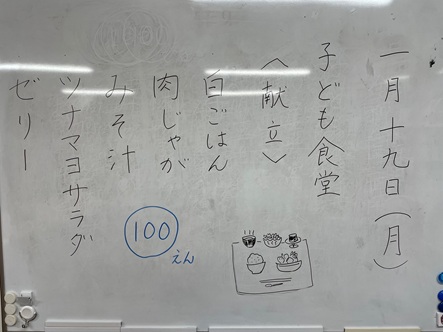 一月十九日(月)
子ども食堂
〈献立〉
白ごはん
肉じゃが
みそ汁
ツナマヨサラダ
ゼリー
100
えん